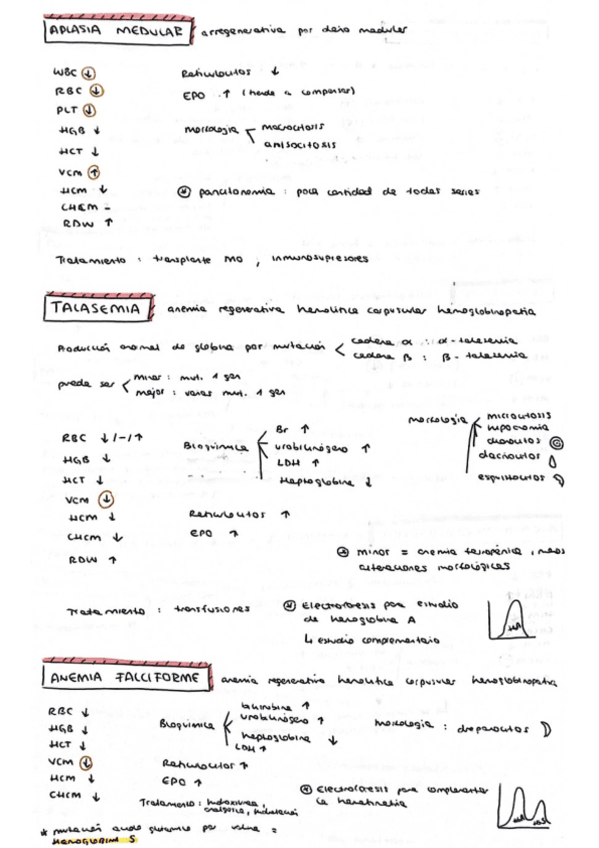 APLASIA MEDULAR arregenerativa por daño medular
WBC ↓ Reticulocitos ↓
RBC ↓ EPO ↑ (tiende a compensar)
PLT ↓
HGB ↓ morfología macrocitosis
HCT ↓ anisocitosis
VCM ↑
HCM ↓ pancitopenia : poca cantidad de todas series
CHCM –
RDW ↑
Tratamiento : transplante MO , inmunosupresores
TALASEMIA anemia regenerativa hemolítica corpuscular hemoglobinopatía
Producción anormal de globina por mutación cadena α : α-talasemia
cadena β : β-talasemia
puede ser minor : mut. 1 gen
major : varias mut. 1 gen
RBC ↓/–/↑ Bioquímica Br ↑ morfología microcitosis
HGB ↓ urobilinógeno ↑ hipocromia
HCT ↓ LDH ↑ dianocitos
VCM ↓ Haptoglobina ↓ dacriocitos
HCM ↓ Reticulocitos ↑ esquistocitos
CHCM ↓ EPO ↑
RDW ↑ minor = anemia ferropénica,
alteraciones morfológicas
Tratamiento : transfusiones Electroforesis para estudio
de hemoglobina A
↳ estudio complementario
ANEMIA FALCIFORME anemia regenerativa hemolítica corpuscular hemoglobinopatía
RBC ↓ Bioquímica bilirrubina ↑
HGB ↓ urobilinógeno ↑ morfología : drepanocitos
HCT ↓ heptoglobina ↓
VCM ↓ LDH ↑
HCM ↓ Reticulocitos ↑
CHCM ↓ EPO ↑ Electroforesis para complementar
la hematimetría
Tratamiento : hidroxiurea,
analgesia, hidratación
* mutación ácido glutámico por valina =
HEMOGLOBINA S